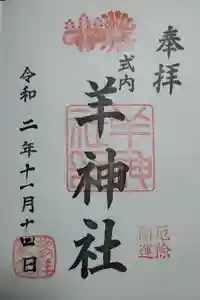 奉拝
式内
羊神社
羊神社
厄除
開運
令和二年十一月十四日